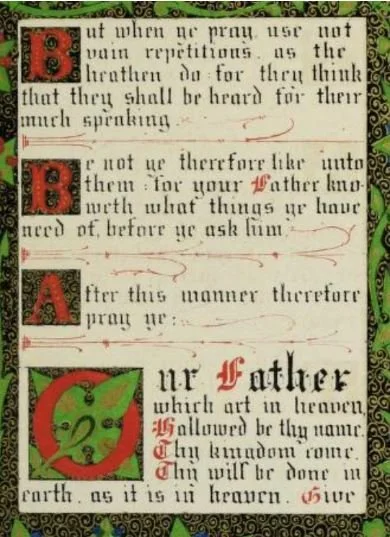 But when ye pray, use not
vain repetitions, as the
heathen do: for they think
that they shall be heard for their
much speaking.
Be not ye therefore like unto
them: for your Father kno-
weth what things ye have
need of, before ye ask him.
After this manner therefore
pray ye:
Our Father
which art in heaven,
Hallowed be thy name.
Thy kingdom come.
Thy will be done in
earth, as it is in heaven. Give